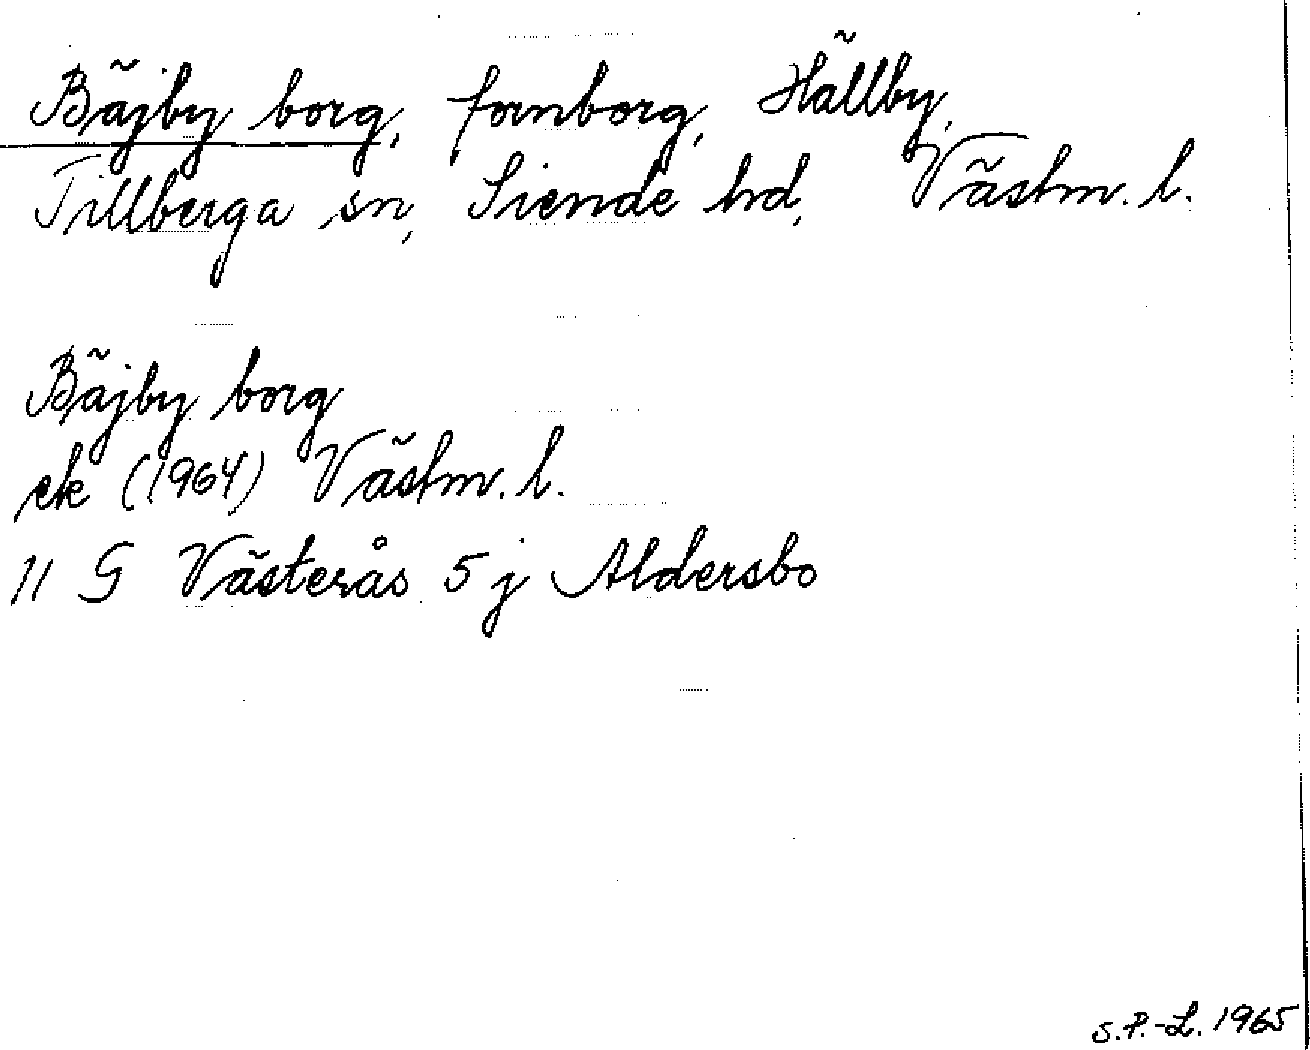 Bäjby borg, fornborg, Hällby,
Tillberga sn, Siende hd, Västm. l.
Bäjby borg
ek (1964) Västm. l.
11 G Västerås 5 j Aldersbo
S.P.-L. 1965